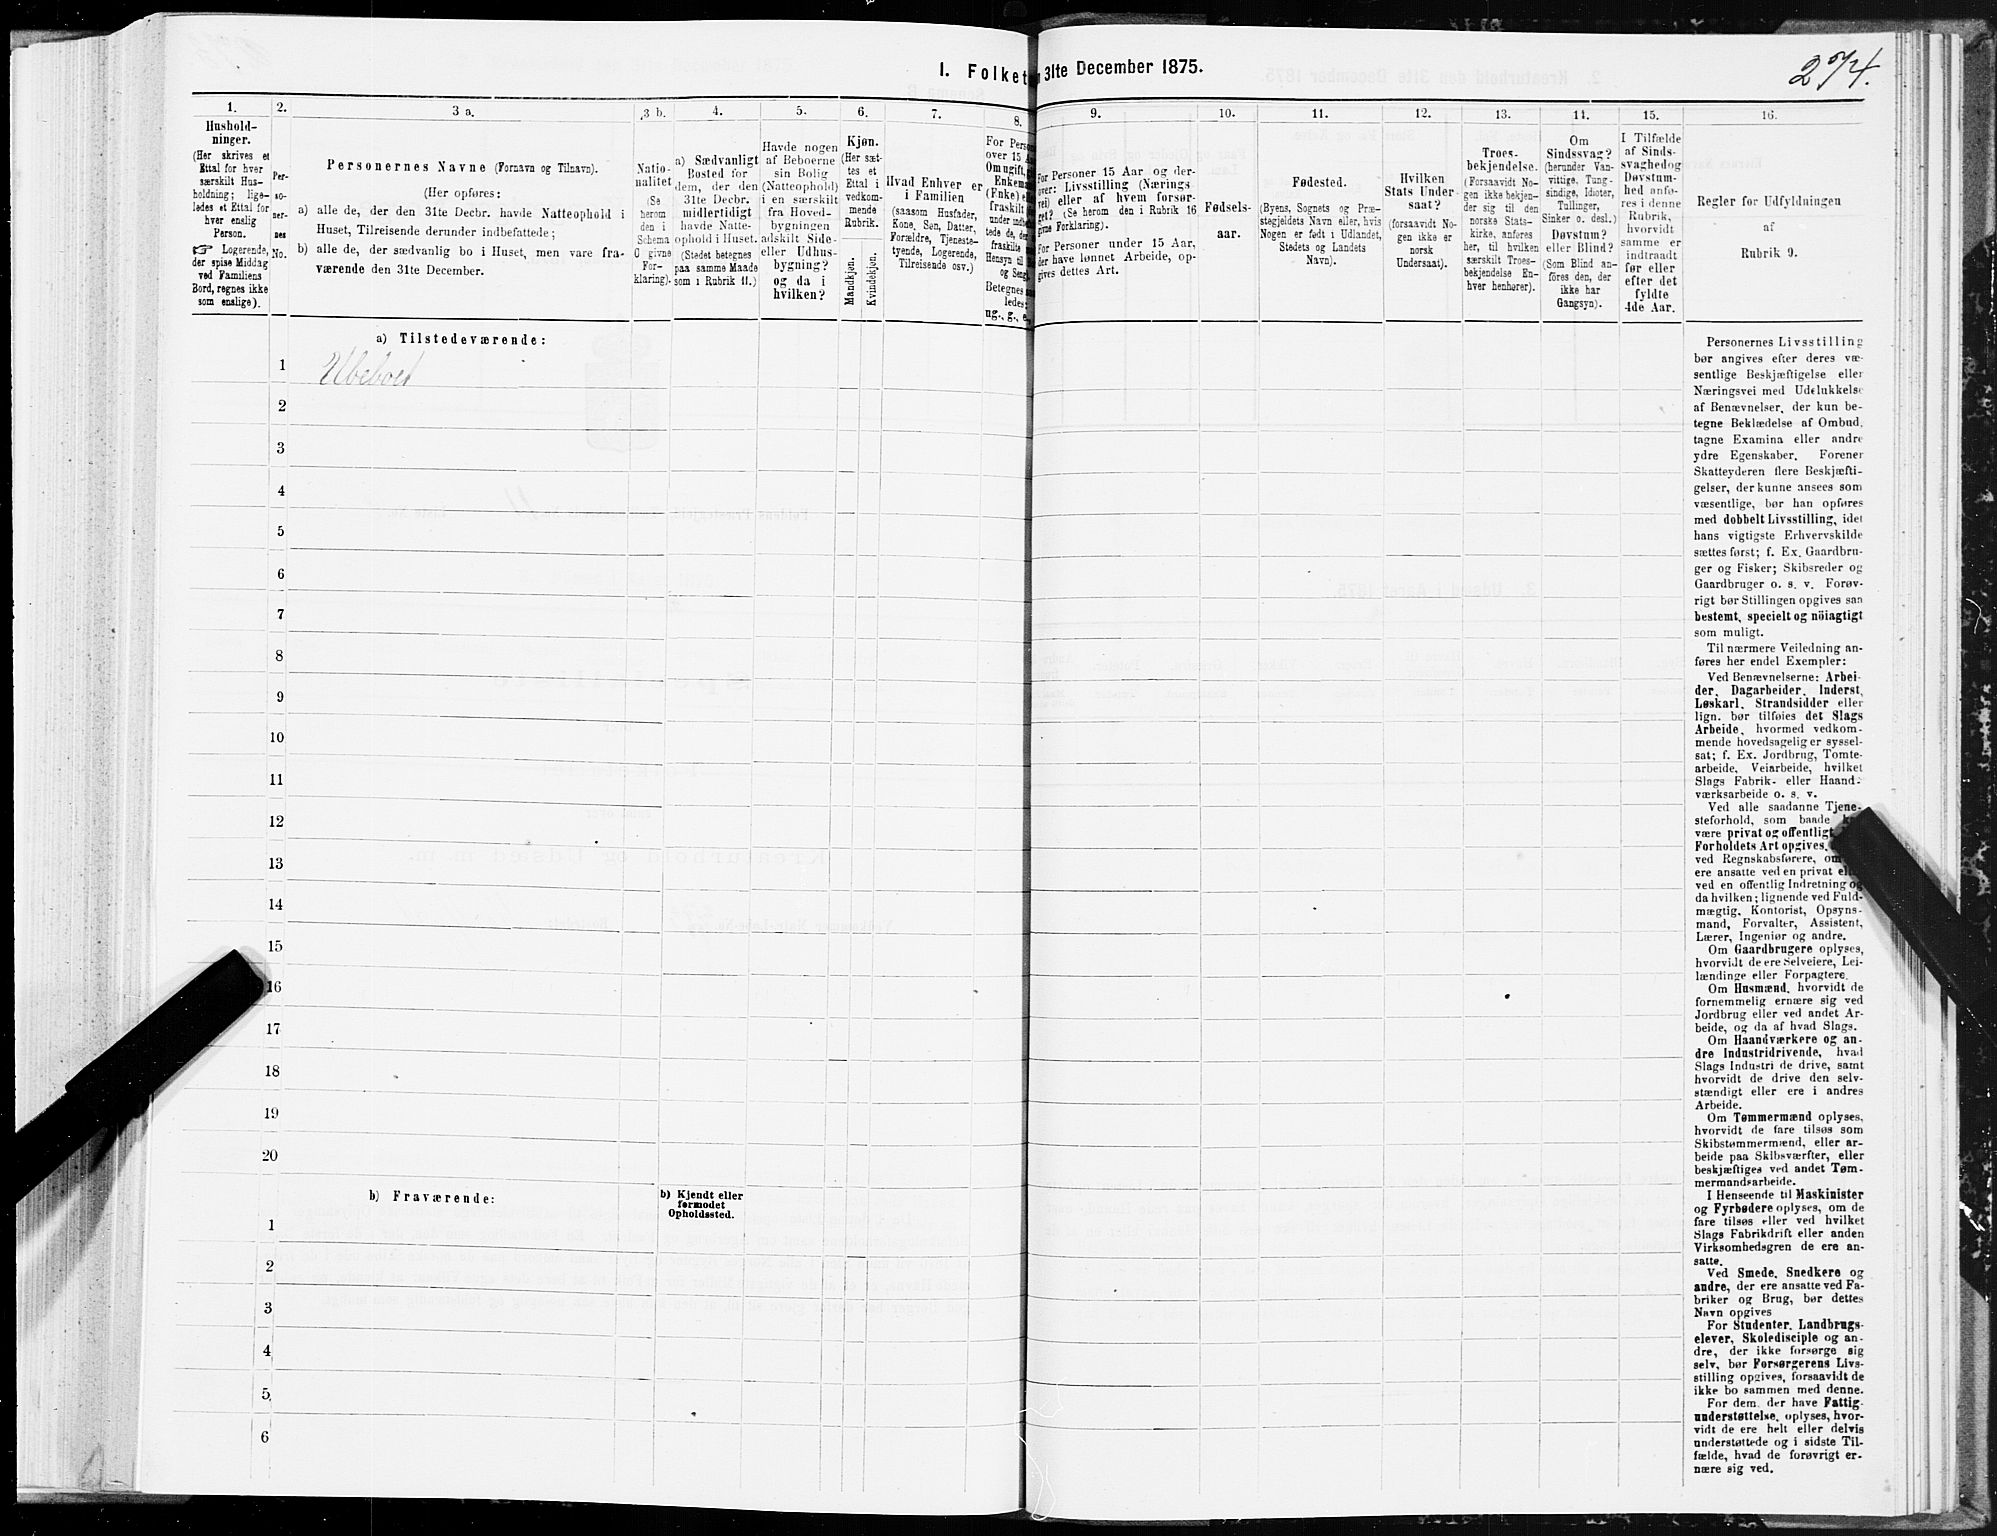 274.
I. Folket
n 31te December 1875.
1.
Hushold-
ninger.
(Her skrives et
Ettal for hver
særskilt Hus-
holdning; lige-
ledes et Ettal for
hver enslig
Person.
☞ Logerende,
der spise Middag
ved Familiens
Bord, regnes ikke
som enslige).
2.
Per-
so-
ner-
nes
No.
3 a.
Personernes Navne (Fornavn og Tilnavn).
(Her opføres:
a) alle de, der den 31te Decbr. havde Natteophold i
Huset, Tilreisende derunder indbefattede;
b) alle de, der sædvanlig bo i Huset, men vare fra-
værende den 31te December.
3 b.
Natio-
nalitet
(Se
herom
den i
Schema
C givne
For-
klaring).
4.
a) Sædvanligt
Bosted for
dem, der den
31te Decbr.
midlertidigt
havde Natte-
ophold i Huset.
(Stedet betegnes
paa samme Maade
som i Rubrik 11.)
5.
Havde nogen
af Beboerne
sin Bolig
(Natteophold)
i en særskilt
fra Hoved-
bygningen
adskilt Side-
eller Udhus-
bygning?
og da i
hvilken?
6.
Kjøn.
(Her sæt-
tes et
Ettal i
vedkom-
mende
Rubrik.
Mandkjøn.
Kvindekjøn.
7.
Hvad Enhver er
i Familien
(saasom Husfader,
Kone, Søn, Datter,
Forældre, Tjeneste-
tyende, Logerende,
Tilreisende osv.)
8.
For Perso
over 15 A
Om ugift, gi
Enkema
(Enke) e
fraskilt
under indbe
tede de, de
fraskilte
Hensyn til
og Seng
Betegnes s
ledes:
ug., g., e.
9.
For Personer 15 Aar og der-
over: Livsstilling (Nærings
vei) eller af hvem forsør-
get? (Se herom den i Rubrik 16
givne Forklaring).
For Personer under 15 Aar,
der have lønnet Arbeide, op-
gives dettes Art.
10.
Fødsels-
aar.
11.
Fødested.
(Byens, Sognets og Præ-
stegjeldets Navn eller, hvis
Nogen er født i Udlandet,
Stedets og Landets
Navn).
12.
Hvilken
Stats Under-
saat?
(forsaavidt No-
gen ikke er
norsk
Undersaat).
13.
Troes-
bekjendelse.
(Forsaavidt No-
gen ikke bekjen-
der sig til den
norske Stats-
kirke, anføres
her, til hvilken
særskilt Troes-
bekjendelse En-
hver henhører).
14.
Om
Sindssvag?
(herunder Van-
vittige, Tung-
sindige, Idioter,
Tullinger,
Sinker o. desl.)
Døvstum?
eller Blind?
(Som Blind an-
føres den, der
ikke har
Gangsyn).
15.
I Tilfælde
af Sinds-
svaghed og
Døvstum-
hed anfø-
res i denne
Rubrik,
hvorvidt
samme er
indtraadt
før eller
efter det
fyldte
4de Aar.
16.
Regler for Udfyldningen
af
Rubrik 9.
a) Tilstedeværende:
1 Ubeboet
2
3
4
5
6
7
8
9
10
11
12
13
14
15
16
17
18
19
20
b) Fraværende:
b) Kjendt eller
formodet
Opholdssted.
1
2
3
4
5
6
Personernes Livsstilling
bør angives efter deres væ-
sentlige Beskjæftigelse eller
Næringsvei med Udelukkelse
af Benævnelser, der kun be-
tegne Beklædelse af Ombud,
tagne Examina eller andre
ydre Egenskaber. Forener
Skatteyderen flere Beskjæfti-
gelser, der kunne ansees som
væsentlige, bør han opføres
med dobbelt Livsstilling, idet
hans vigtigste Erhvervskilde
sættes først; f. Ex. Gaardbru-
ger og Fisker; Skibsreder og
Gaardbruger o. s. v. Forøv-
rigt bør Stillingen opgives saa
bestemt, specielt og nöiagtigt
som muligt.
Til nærmere Veiledning an-
føres her endel Exempler:
Ved Benævnelserne: Arbei-
der, Dagarbeider, Inderst,
Løskarl, Strandsidder eller
lign. bør tilføies det Slags
Arbeide, hvormed vedkom-
mende hovedsagelig er syssel-
sat; f. Ex. Jordbrug, Tomte-
arbeide, Veiarbeide, hvilket
Slags Fabrik- eller Haand-
værksarbeide o. s. v.
Ved alle saadanne Tjene-
steforhold, som baade
være privat og offentligt,
Forholdets Art opgives,
ved Regnskabsførere, om
ere ansatte ved en privat el
ved en offentlig Indretning og
da hvilken; lignende ved Fuld-
mægtig, Kontorist, Opsyns-
mand, Forvalter, Assistent,
Lærer, Ingeniør og andre.
Om Gaardbrugere oplyses,
hvorvidt de ere Selveiere, Lei-
lændinge eller Forpagtere.
Om Husmænd, hvorvidt de
fornemmelig ernære sig ved
Jordbrug eller ved andet Ar-
beide, og da af hvad Slags.
Om Haandværkere og an-
dre Industridrivende, hvad
Slags Industri de drive, samt
hvorvidt de drive den selv-
stændigt eller ere i andres
Arbeide.
Om Tømmermænd oplyses,
hvorvidt de fare tilsøs som
Skibstømmermænd, eller ar-
beide paa Skibsværfter, eller
beskjæftiges ved andet Tøm-
mermandsarbeide.
I Henseende til Maskinister
og Fyrbødere oplyses, om de
fare tilsøs eller ved hvilket
Slags Fabrikdrift eller anden
Virksomhedsgren de ere an-
satte.
Ved Smede, Snedkere og
andre, der ere ansatte ved Fa-
briker og Brug, bør dettes
Navn opgives
For Studenter, Landbrugs-
elever, Skoledisciple og an-
dre, der ikke forsørge sig
selv, bør Forsørgerens Livs-
stilling opgives, forsaavidt de
ikke bo sammen med denne.
For dem, der have Fattig-
understøttelse, oplyses, hvor-
vidt de ere helt eller delvis
understøttede og i sidste Til-
fælde, hvad de forøvrigt er-
nære sig ved.